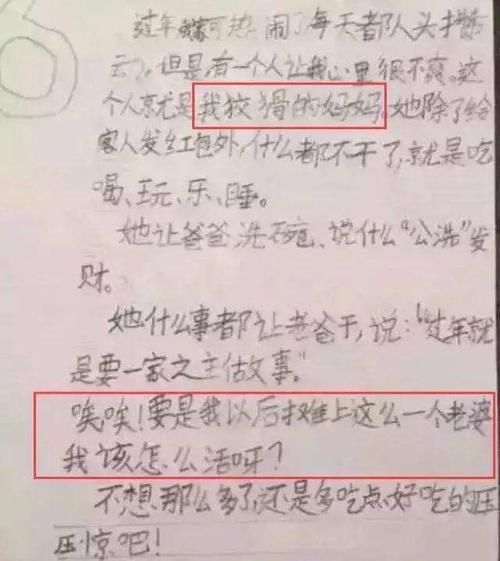 过年可热闹了每天都人头攒
云，但是，有一个人让我心里很不爽。这
个人就是我狡猾的妈妈，她除了给
客人发红包外，什么都不干了，就是吃
喝、玩、乐、睡。
她让爸爸洗碗、说什么“公洗”发
财。
她什么事都让爸爸干，说：“过年就
是要一家之主做事。”
唉唉！要是我以后摊上这么一个老婆
我该怎么活呀？
不想那么多了，还是多吃点好吃的压
压惊吧！